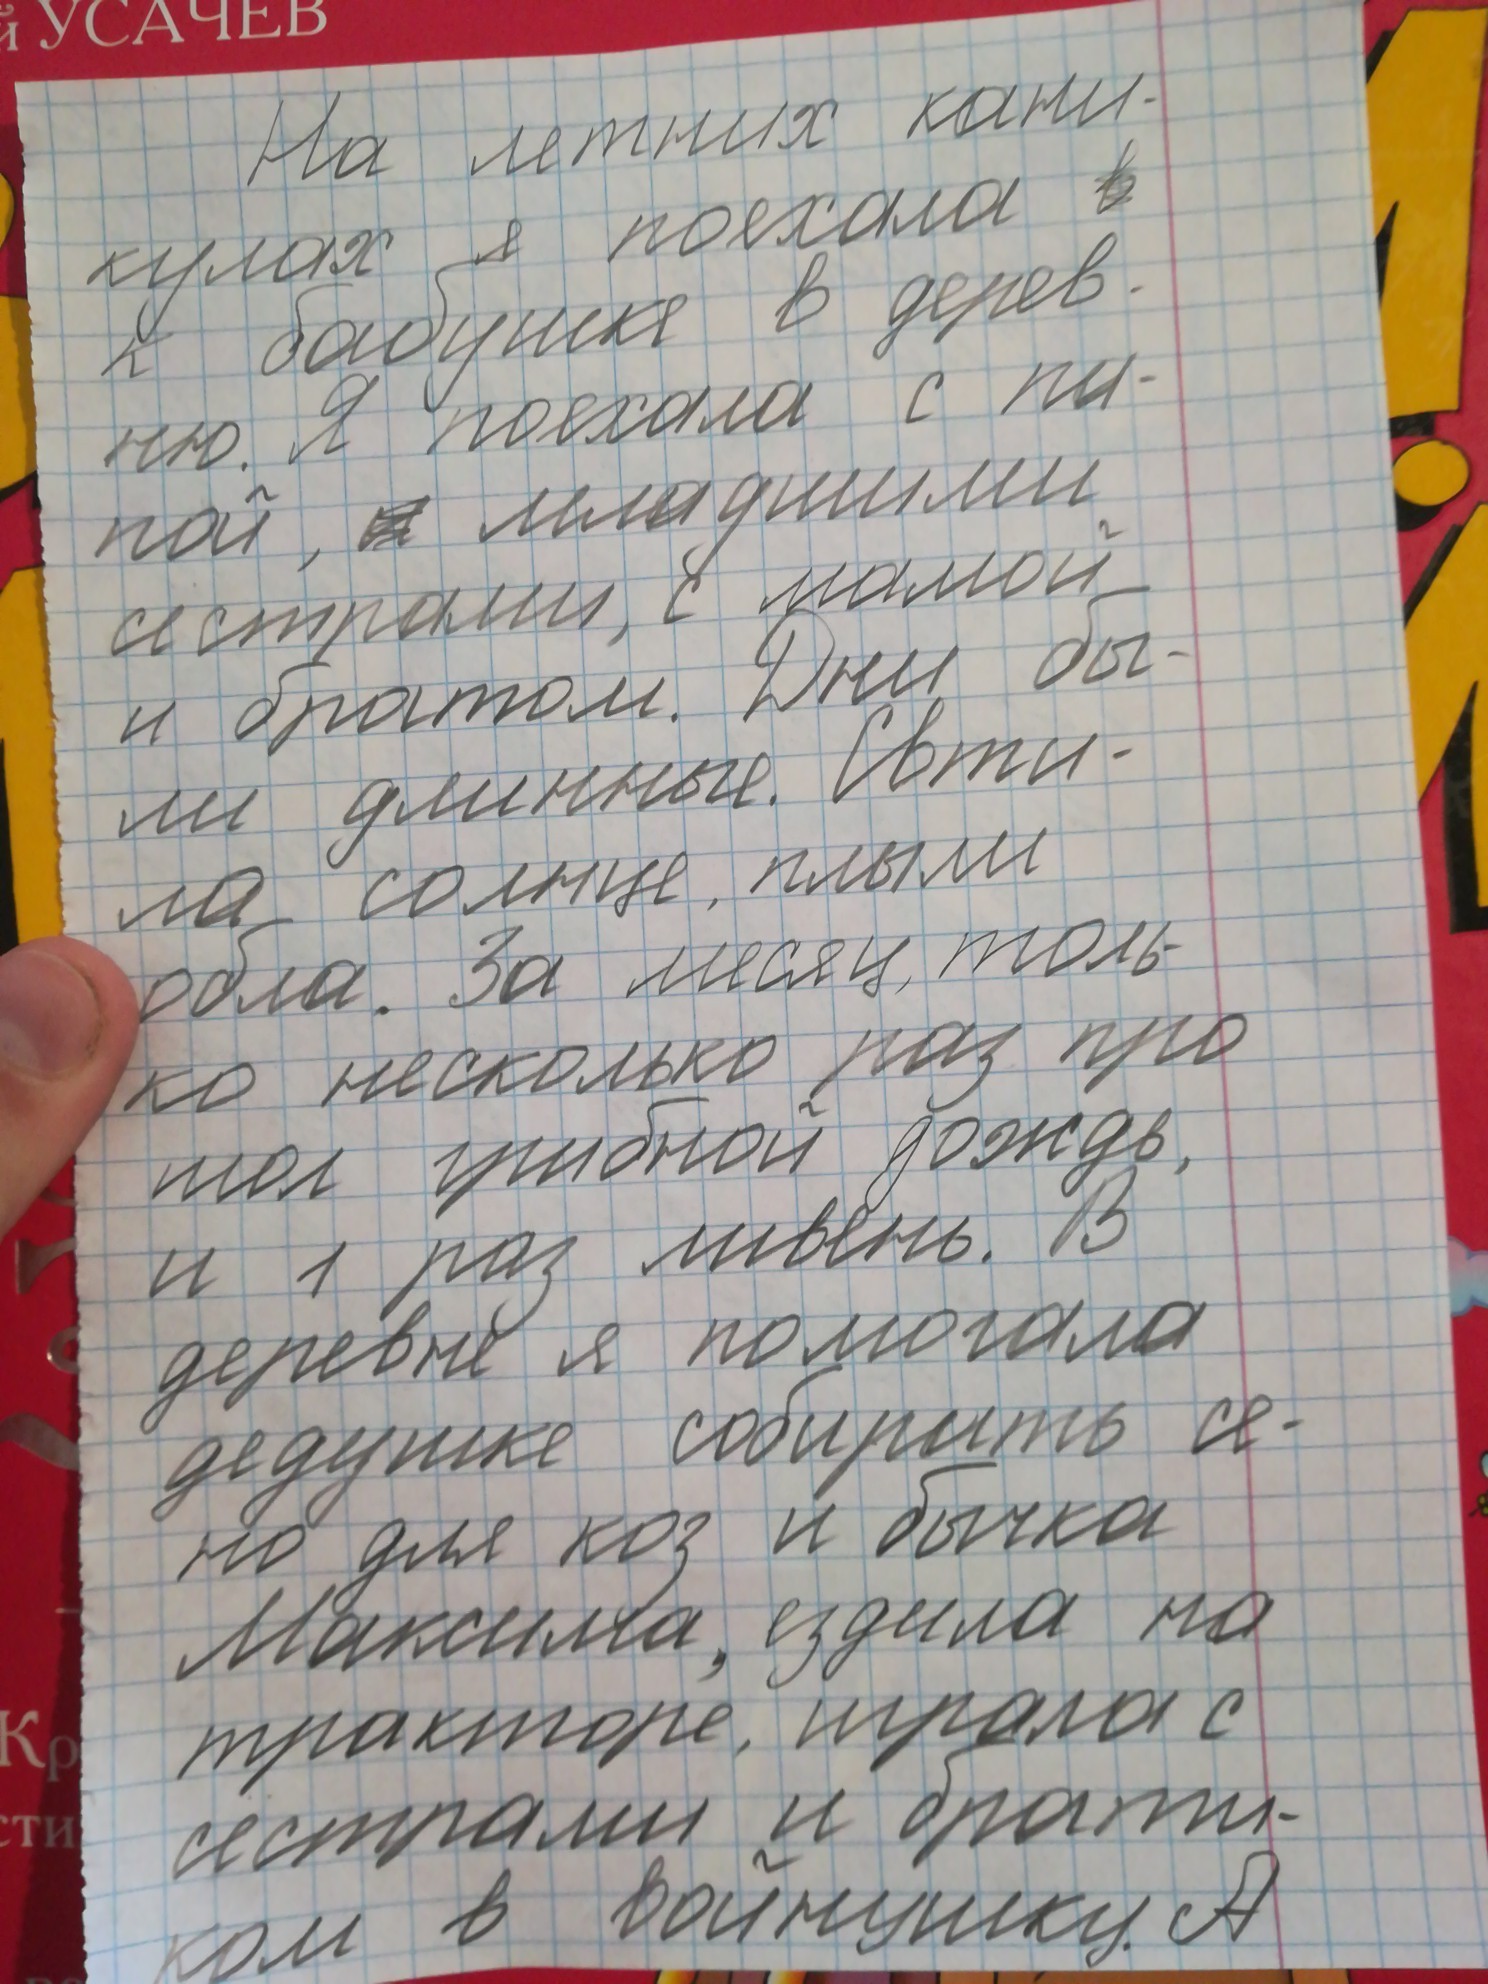 й УСАЧЕВ
На летних кани-
кулах я поехала
к бабушке в дерев-
ню. Я поехала с па-
пой, младшими
сестрами, с мамой
и братом. Дни бы-
ли длинные. Свти-
ла солнце, плыли
обла. За месяц, толь-
ко несколько раз про
шол грибной дождь,
и 1 раз ливень. В
деревне я помогала
дедушке собирать се-
но для коз и бычка
Максима, ездила на
тракторе, играла с
сестрами и брати-
ком в войнушку. А
Кр
сти